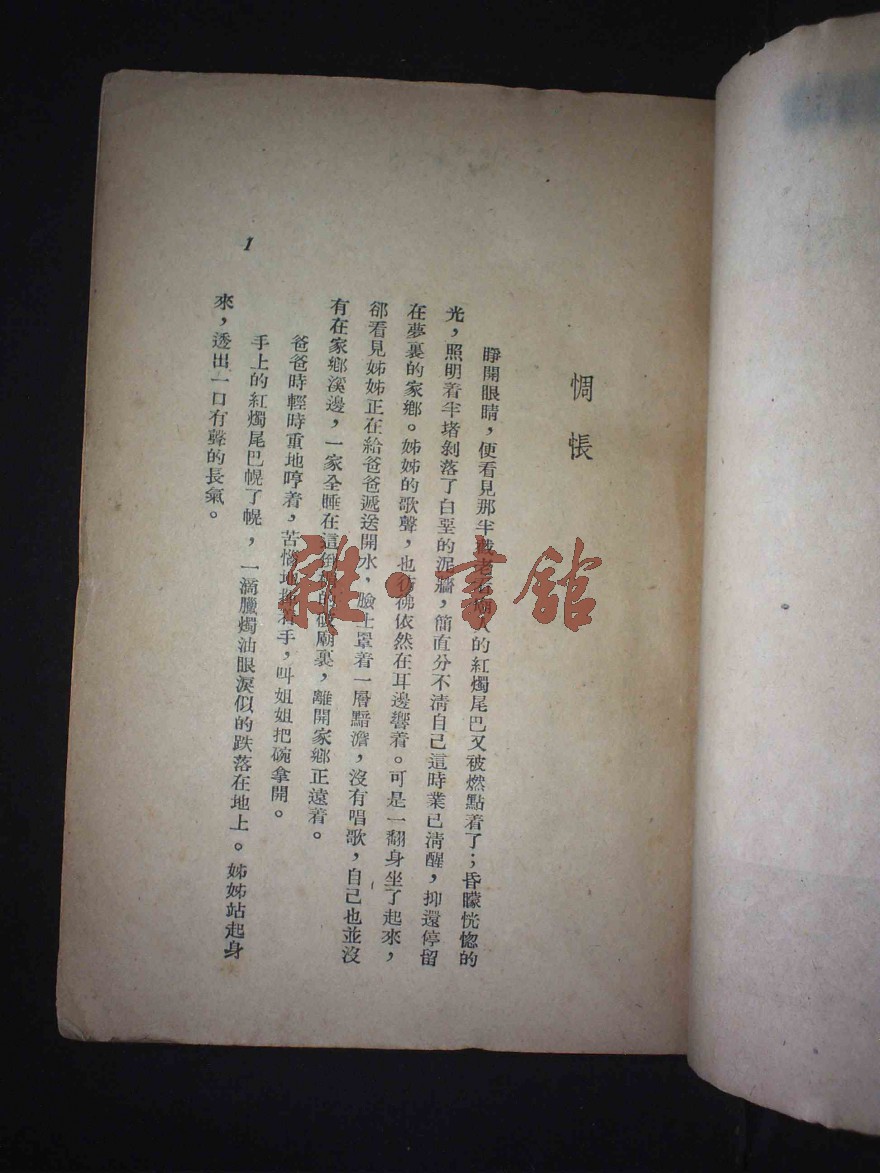 惆悵
睜開眼睛，便看見那半截老廟人的紅燭尾巴又被燃點着了；昏矇恍惚的
光，照明着半堵剝落了白堊的泥牆，簡直分不清自己這時業已清醒，抑還停留
在夢裏的家鄉。姊姊的歌聲，也彷彿依然在耳邊響着。可是一翻身坐了起來，
卻看見姊姊正在給爸爸遞送開水，臉上罩着一層黯澹，沒有唱歌，自己也並沒
有在家鄉溪邊，一家全睡在這破廟裏，離開家鄉正遠着。
爸爸時輕時重地哼着，苦惱地着手，叫姐姐把碗拿開。
手上的紅燭尾巴幌了幌，一滴臘燭油眼淚似的跌落在地上。姊姊站起身
來，透出一口有聲的長氣。
1
雜·書館